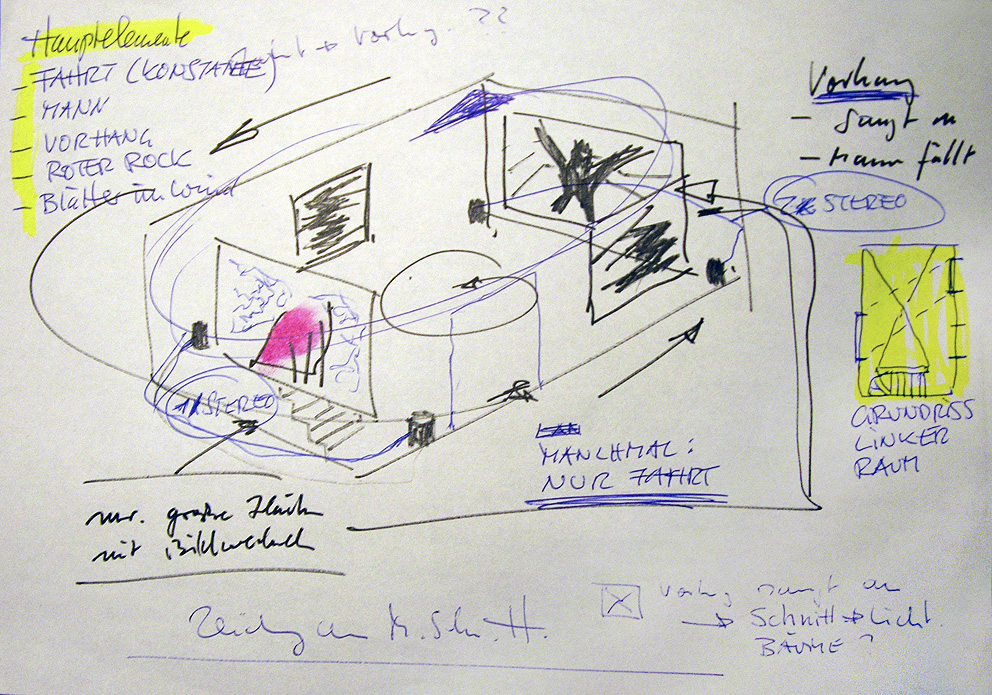 Hauptelemente
– FAHRT (KONSTANTE)
– MANN
– VORHANG
– ROTER ROCK
– Blätter im Wind
→ Vorhg. ??
Vorhang
– saugt an
– Mann fällt
2x STEREO
1x STEREO
GRUNDRISS
LINKER
RAUM
MANCHMAL:
NUR FAHRT
nur. große Fläche
mit Bildwechsel
Vorhg saugt an
→ Schnitt → Licht.
BÄUME?